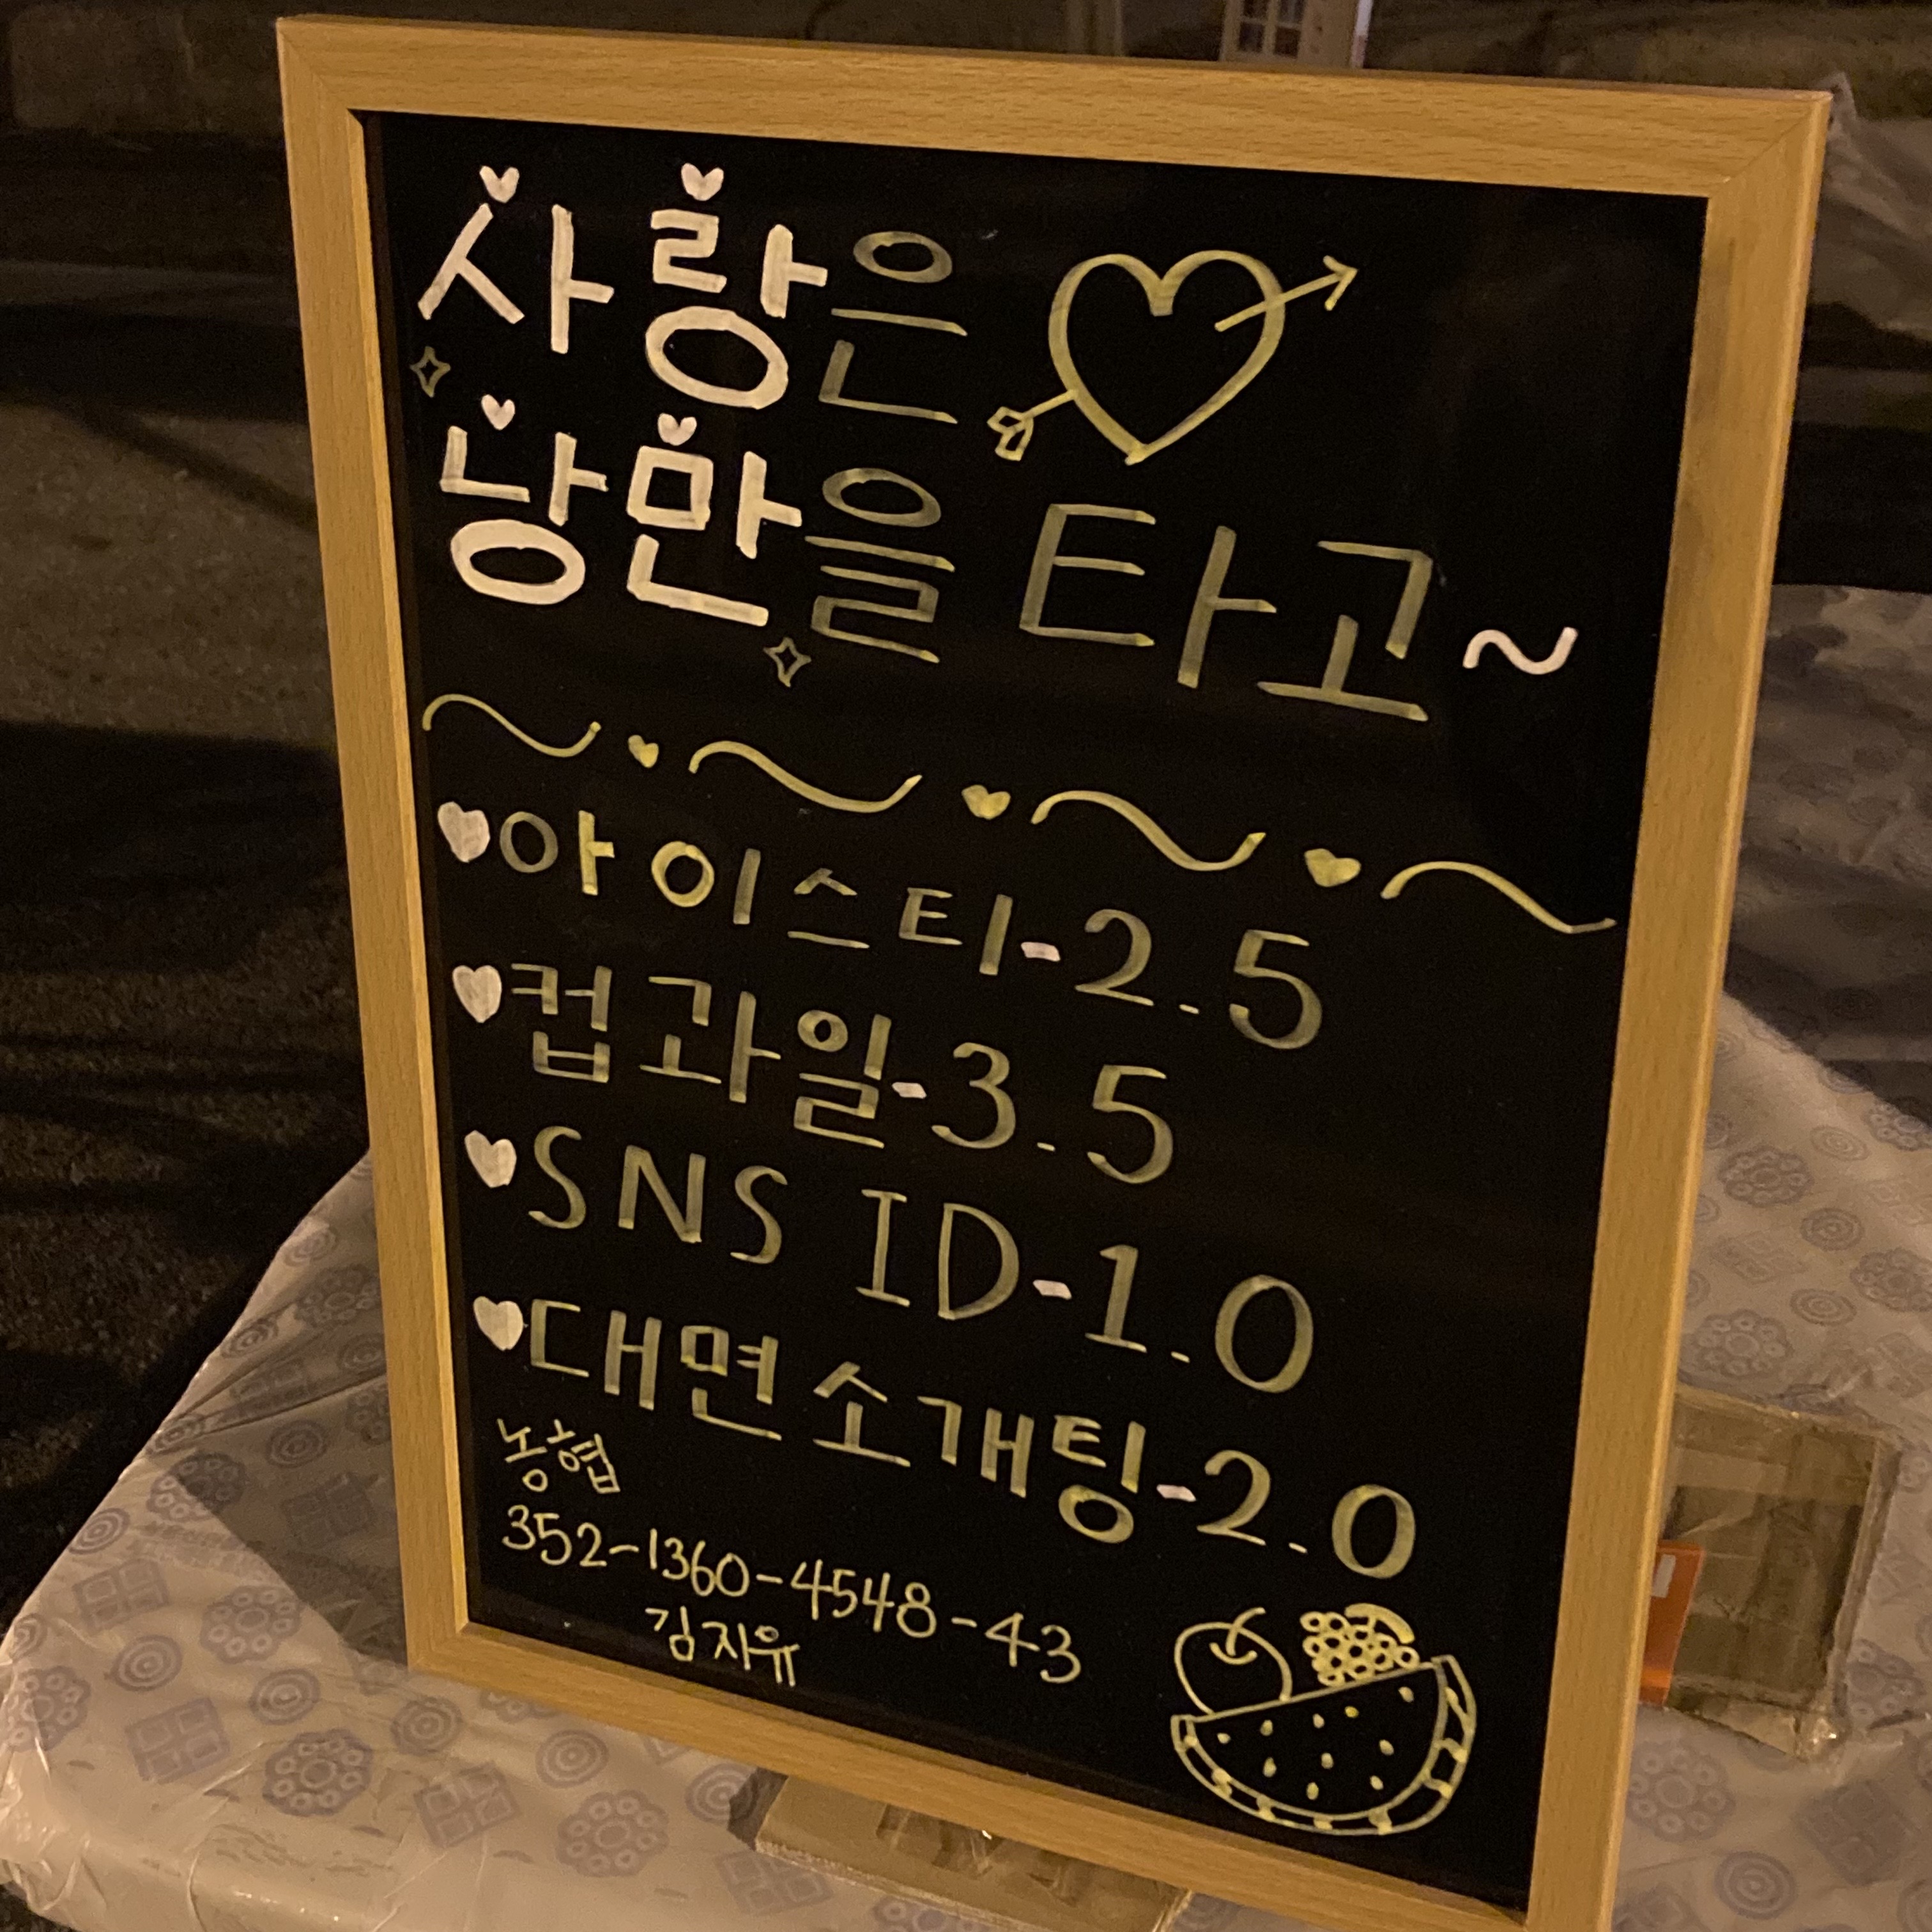 사랑은
낭만을 타고~
아이스티-2.5
컵과일-3.5
SNS ID-1.0
대면소개팅-2.0
농협
352-1360-4548-43
김지유